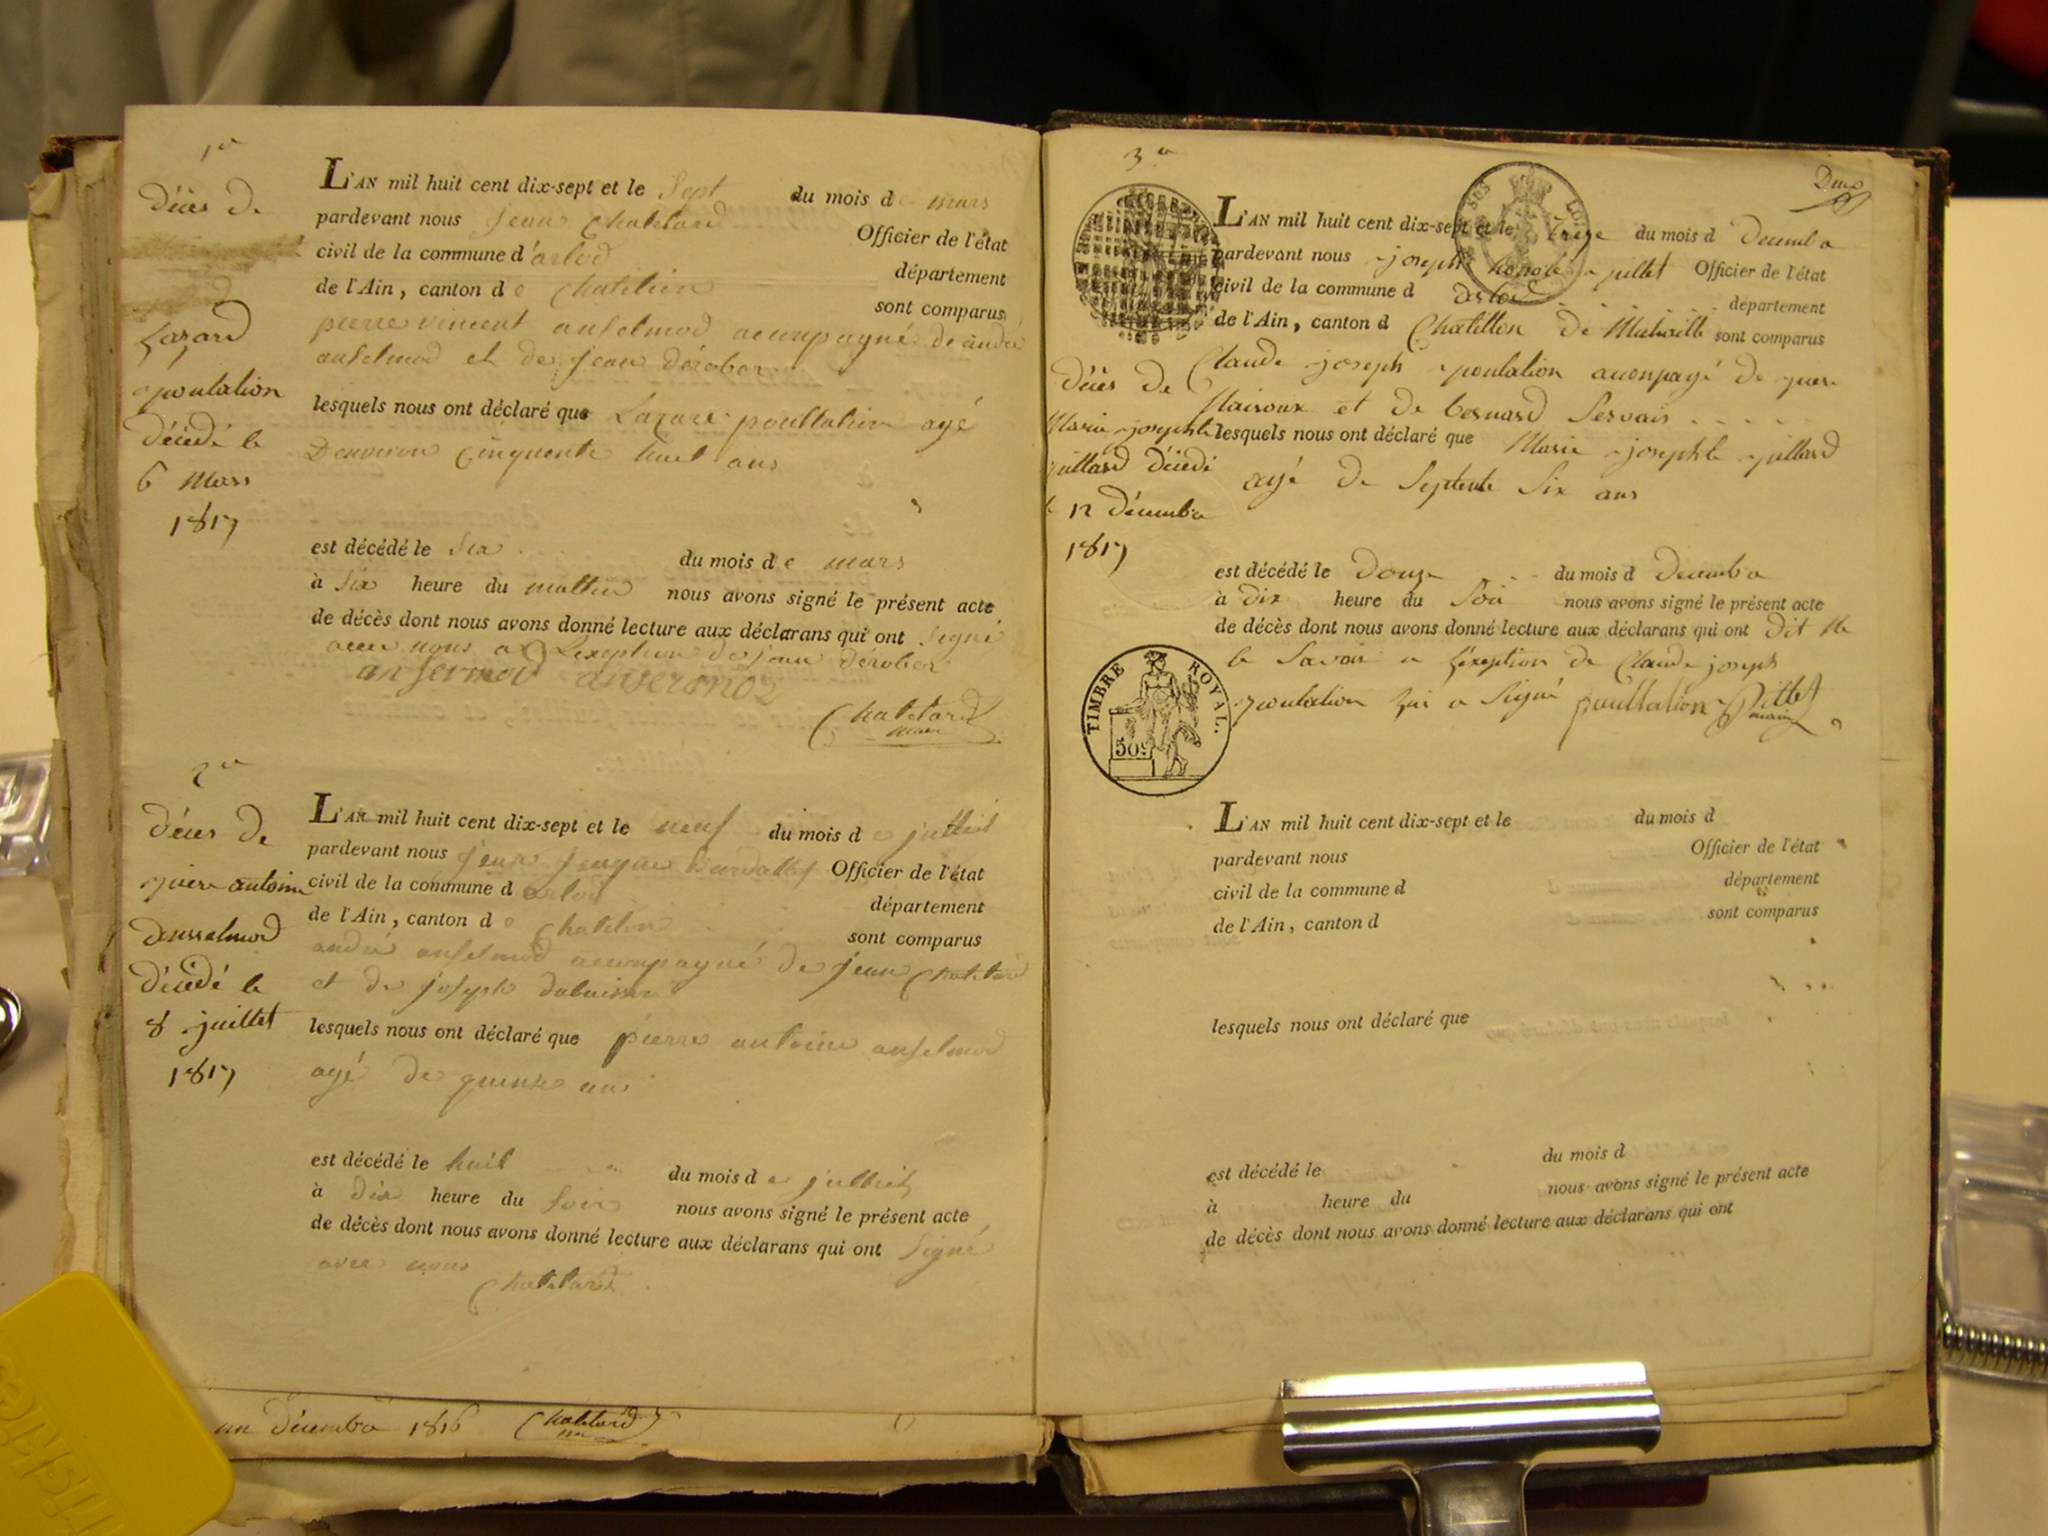 1er
Décès de
Lazard
poulation
décédé le
6 Mars
1817
L'AN mil huit cent dix-sept et le Sept du mois de mars
pardevant nous Jean Chatelard Officier de l'état
civil de la commune d'arlod département
de l'Ain, canton de Chatilion sont comparus
pierre vincent anselmod acompagné de andré
anselmod et de Jean dérober
lesquels nous ont déclaré que Lazare poultation agé
Denviron Cinquente huit ans
est décédé le Six du mois de mars
à Six heure du mattin nous avons signé le présent acte
de décès dont nous avons donné lecture aux déclarans qui ont Signé
avec nous a Lexeption de jean dérober
ansermod anseronoz
Chatelard
maire
2e
Décès de
piere antoine
décédé le
8 juillet
1817
L'AN mil huit cent dix-sept et le neuf du mois de juilliet
pardevant nous Officier de l'état
civil de la commune d arlod département
de l'Ain, canton de Chatilion sont comparus
andré anselmod acompagné de jean Chatelard
et de joseph
lesquels nous ont déclaré que pierre antoine anselmod
agé de quinze ans
est décédé le huit du mois de juilliet
à dix heure du Soir nous avons signé le présent acte
de décès dont nous avons donné lecture aux déclarans qui ont Signé
avec nous
Chatelard
un décembre 1816 Chatelard
3e
Deux
LOI
L'AN mil huit cent dix-sept et le treze du mois d Decembre
pardevant nous joseph honoré pittet Officier de l'état
civil de la commune d darlod département
de l'Ain, canton d Chatillon de Michaille sont comparus
Claude joseph poulation aconpagé de piere
Mairoux et de bernard Servais
lesquels nous ont déclaré que Marie josephte juillard
agé de Septente Six ans
Décès de
Marie josephte
juillard décédé
le 12 décembre
1817
est décédé le Douze du mois d Decembre
à dix heure du Soir nous avons signé le présent acte
de décès dont nous avons donné lecture aux déclarans qui ont dit ne
le Savoir a Lexeption de Claude joseph
poulation qui a Signé poultation Pittet
maire
TIMBRE ROYAL.
509
L'AN mil huit cent dix-sept et le du mois d
pardevant nous Officier de l'état
civil de la commune d département
de l'Ain, canton d sont comparus
lesquels nous ont déclaré que
est décédé le du mois d
à heure du nous avons signé le présent acte
de décès dont nous avons donné lecture aux déclarans qui ont